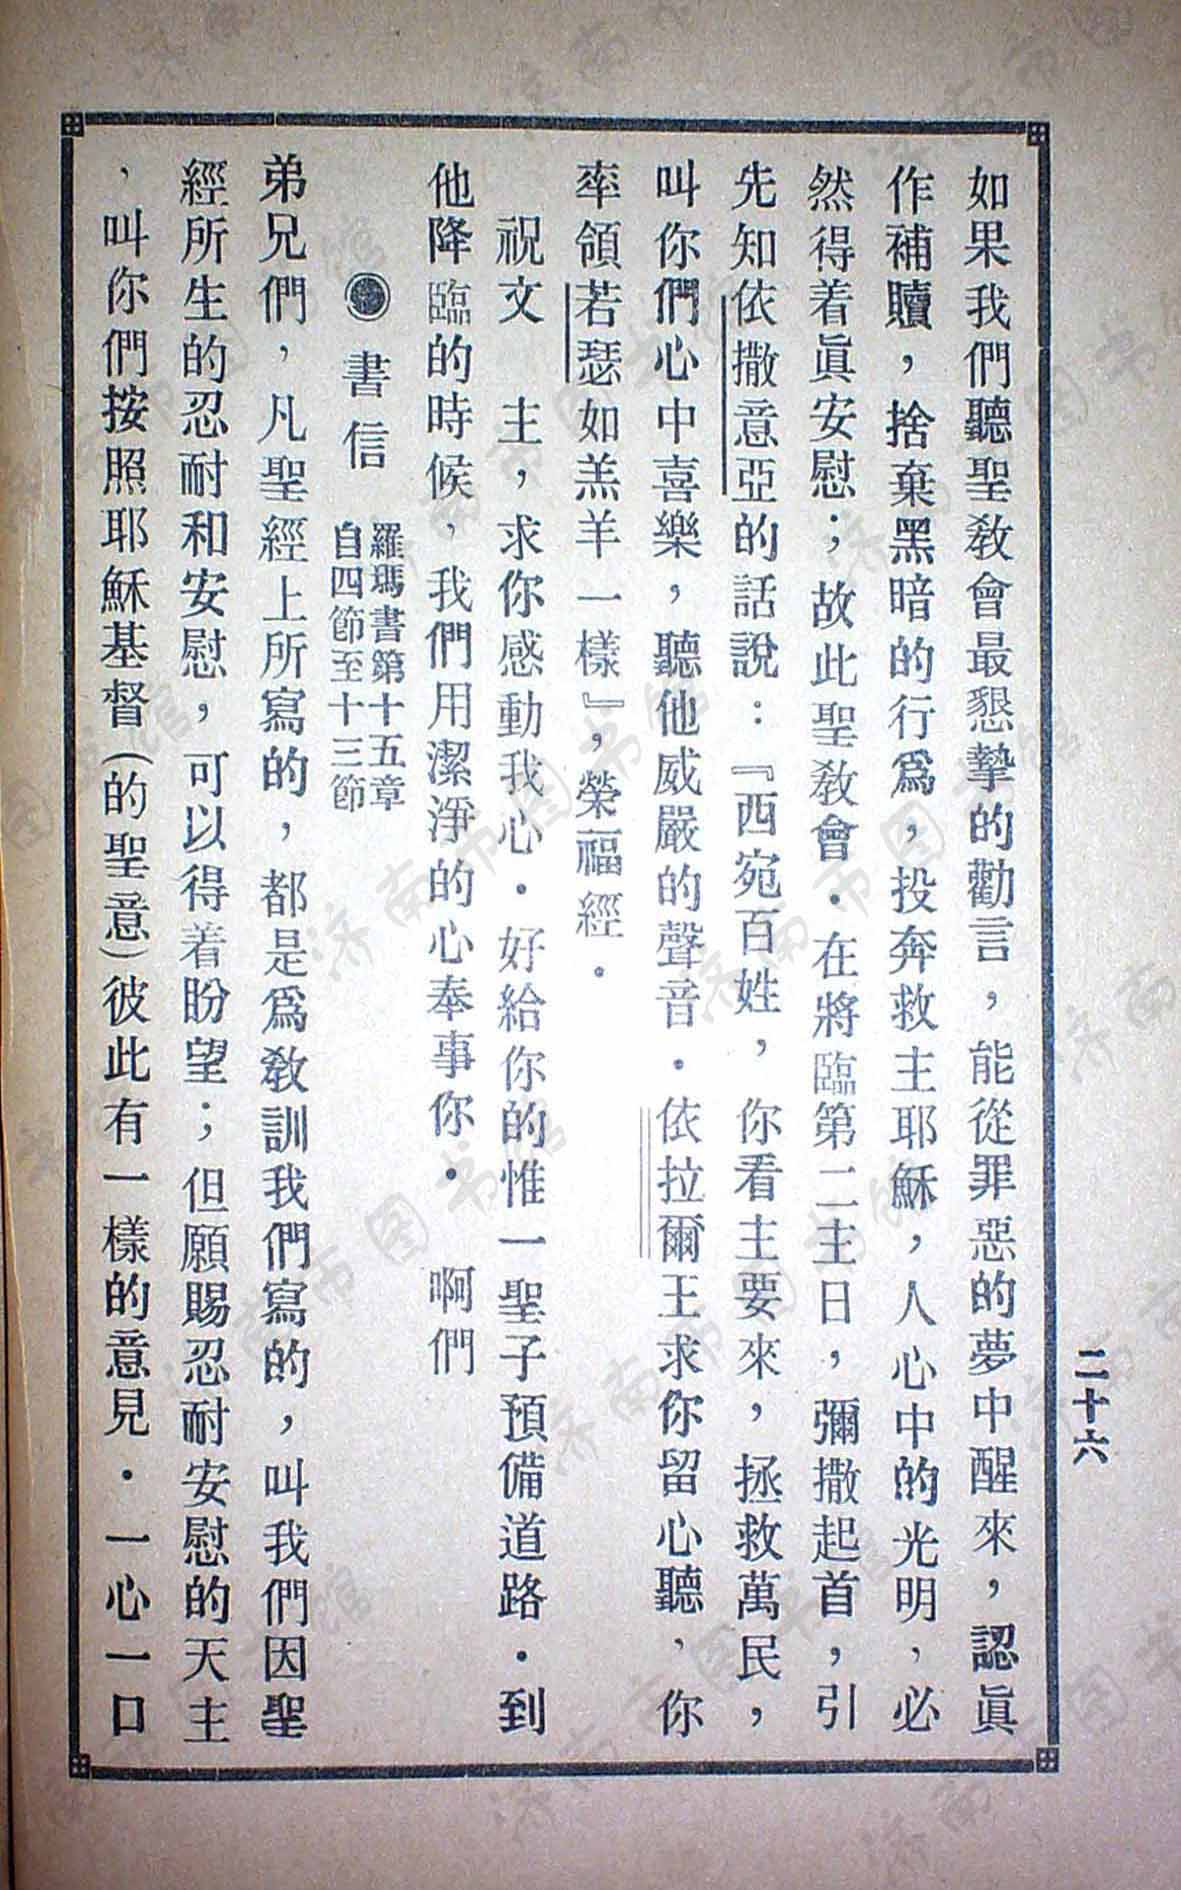 二十六
如果我們聽聖敎會最懇摯的勸言，能從罪惡的夢中醒來，認眞
作補贖，捨棄黑暗的行爲，投奔救主耶穌，人心中的光明，必
然得着眞安慰；故此聖敎會．在將臨第二主日，彌撒起首，引
先知依撒意亞的話說：『西宛百姓，你看主要來，拯救萬民，
叫你們心中喜樂，聽他威嚴的聲音．依拉爾王求你留心聽，你
率領若瑟如羔羊一樣』，榮福經．
祝文　主，求你感動我心．好給你的惟一聖子預備道路．到
他降臨的時候，我們用潔淨的心奉事你．　啊們
◉書信　羅瑪書第十五章
自四節至十三節
弟兄們，凡聖經上所寫的，都是爲敎訓我們寫的，叫我們因聖
經所生的忍耐和安慰，可以得着盼望；但願賜忍耐安慰的天主
，叫你們按照耶穌基督（的聖意）彼此有一樣的意見．一心一口
济南市图书馆